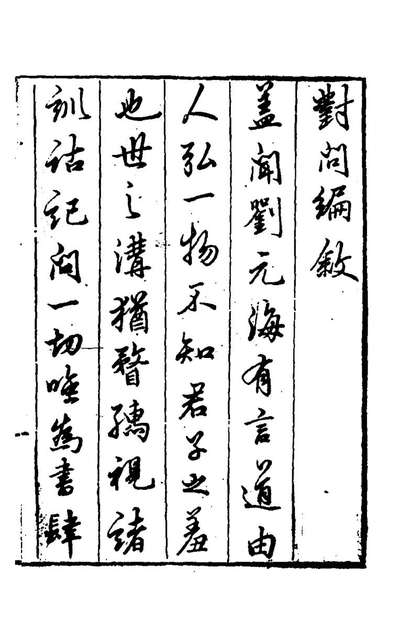 對問編敘
蓋聞劉元海有言道由
人弘一物不知君子之羞
也世之溝猶瞀孺視諸
訓詁記問一切唾為書肆